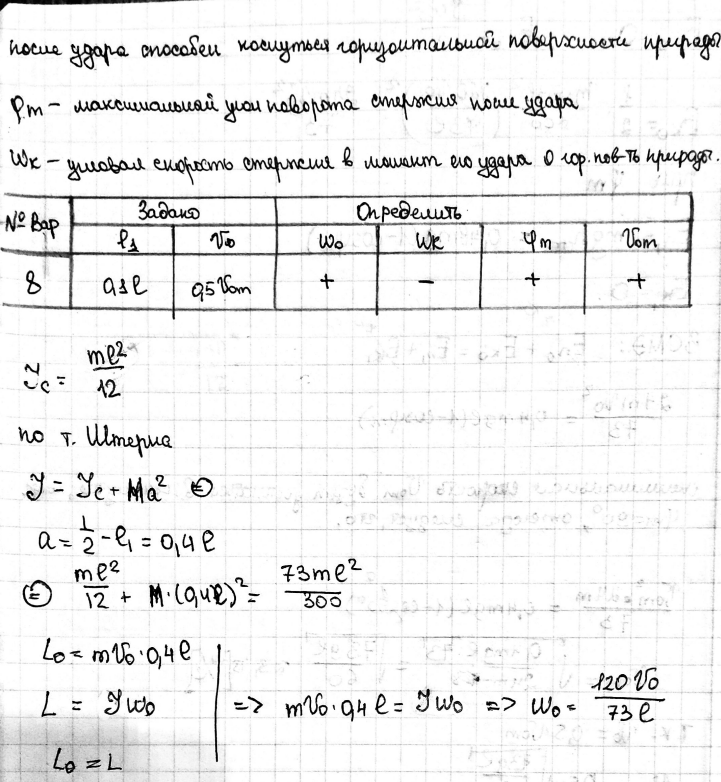 после удара способен коснуться горизонтальной поверхности преграды
φm – максимальный угол поворота стержня после удара
ωк – угловая скорость стержня в момент его удара о гор. пов-ть преграды.
№ Вар Задано Определить
l₁ V₀ ω₀ ωк φm V₀m
8 0,1l 0,5V₀m + – + +
Jc = ml²/12
по т. Штерна
J = Jc + Ma² ⊜
a = l/2 – l₁ = 0,4l
⊜ ml²/12 + M·(0,4l)² = 73ml²/300
L₀ = mV₀·0,4l
L = Jω₀ => mV₀·0,4l = Jω₀ => ω₀ = 120V₀/73l
L₀ = L